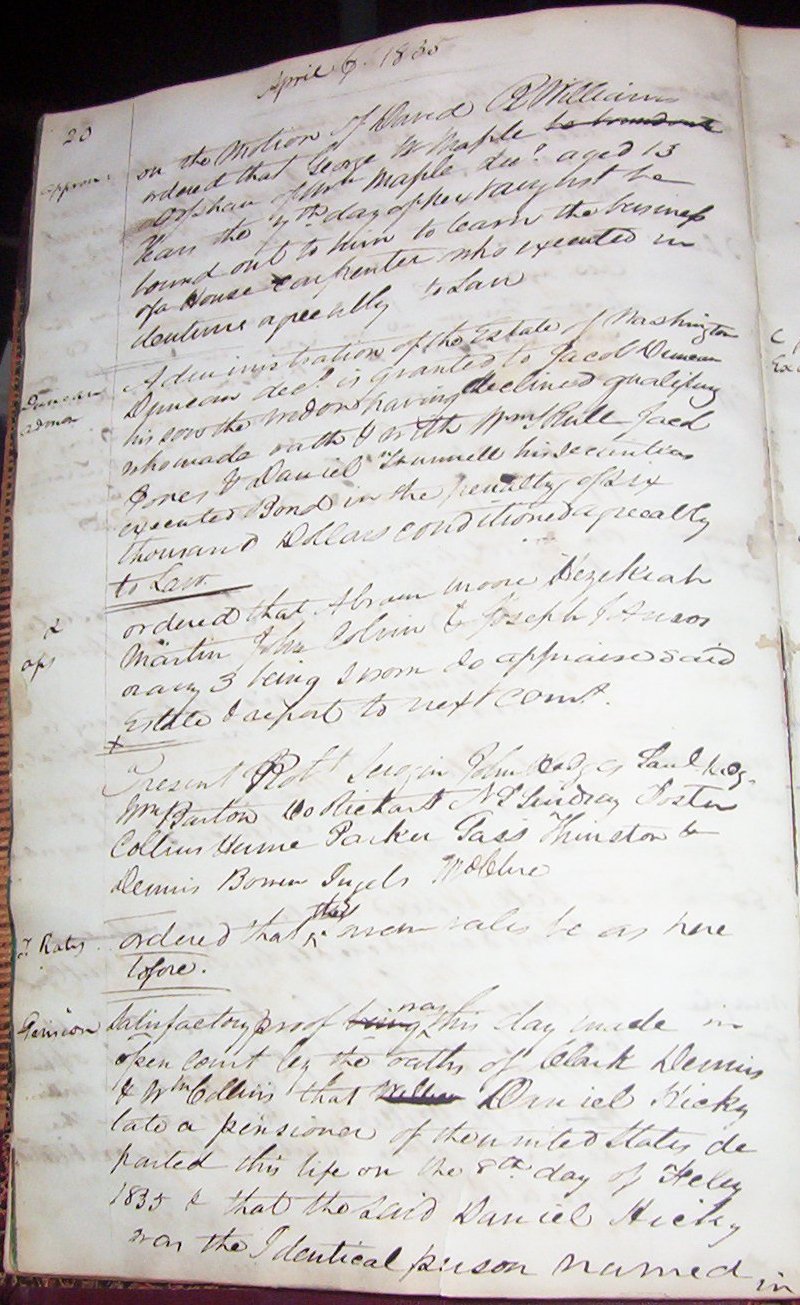 April 6. 1835
20
on the Motion of David R Williams
appren:
ordered that George W Maple be bound out
Orphan of Wm Maple Decd. aged 13
Years the 7th day of next august be
bound out to him to learn the business
of a House carpenter who executed in
dentures agreeably to Law
Administration of the Estate of Washington
Duncan
admor
Duncan decd. is granted to Jacob Duncan
his son the widow having declined qualifying
who made oath & with Wm Rule Jacob
Jones & Daniel Trummell his securities
executed Bond in the penalty of six
thousand Dollars conditioned agreeably
to Law
ordered that Abram Moore Hezekiah
&
aps
Martin John Colvin & Joseph
or any 3 being sworn do appraise said
Estate & report to next Court.
Present Robt Scogin John Hodges
Wm Barton Co Rickart N L Lindsay Foster
Collins Hume Parker Gass Thurston &
Dennis Bowen Ingels McClure
Rates
ordered that the rates be as here
tofore.
Pension
Satisfactory proof being was this day made in
open court by the oaths of Clark Dennis
& Wm Collins that William Daniel Hicky
late a pensioner of the united States de
parted this life on the 8th day of Feby
1835 & that the said Daniel Hicky
was the Identical person named in